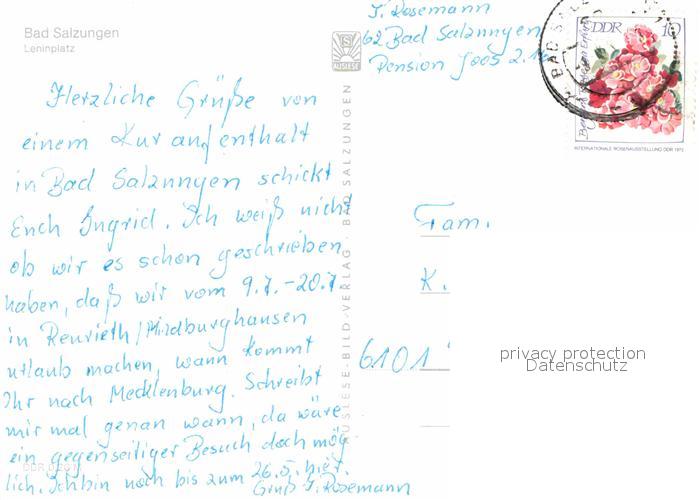 Bad Salzungen
Leninplatz
Herzliche Grüße von
einem Kuraufenthalt
in Bad Salzungen schickt
Euch Ingrid. Ich weiß nicht
ob wir es schon geschrieben
haben, daß wir vom 9.7.-20.7.
in Renrieth/Hildburghausen
urlaub machen, wann kommt
Ihr nach Mecklenburg. Schreibt
mir mal genau wann, da wäre
ein gegenseitiger Besuch doch mög-
lich. Ich bin noch bis zum 26.5. hier.
Gruß I. Rosemann
AUSLESE
AUSLESE-BILD-VERLAG · BAD SALZUNGEN
I. Rosemann
62 Bad Salzungen
Pension Joos
DDR 10
INTERNATIONALE ROSENAUSSTELLUNG DDR 1972
BAD SALZ
Fam.
K.
6101
privacy protection
Datenschutz